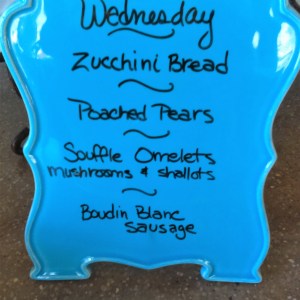 Wednesday
Zucchini Bread
Poached Pears
Souffle Omelets
mushrooms & shallots
Boudin Blanc
Sausage